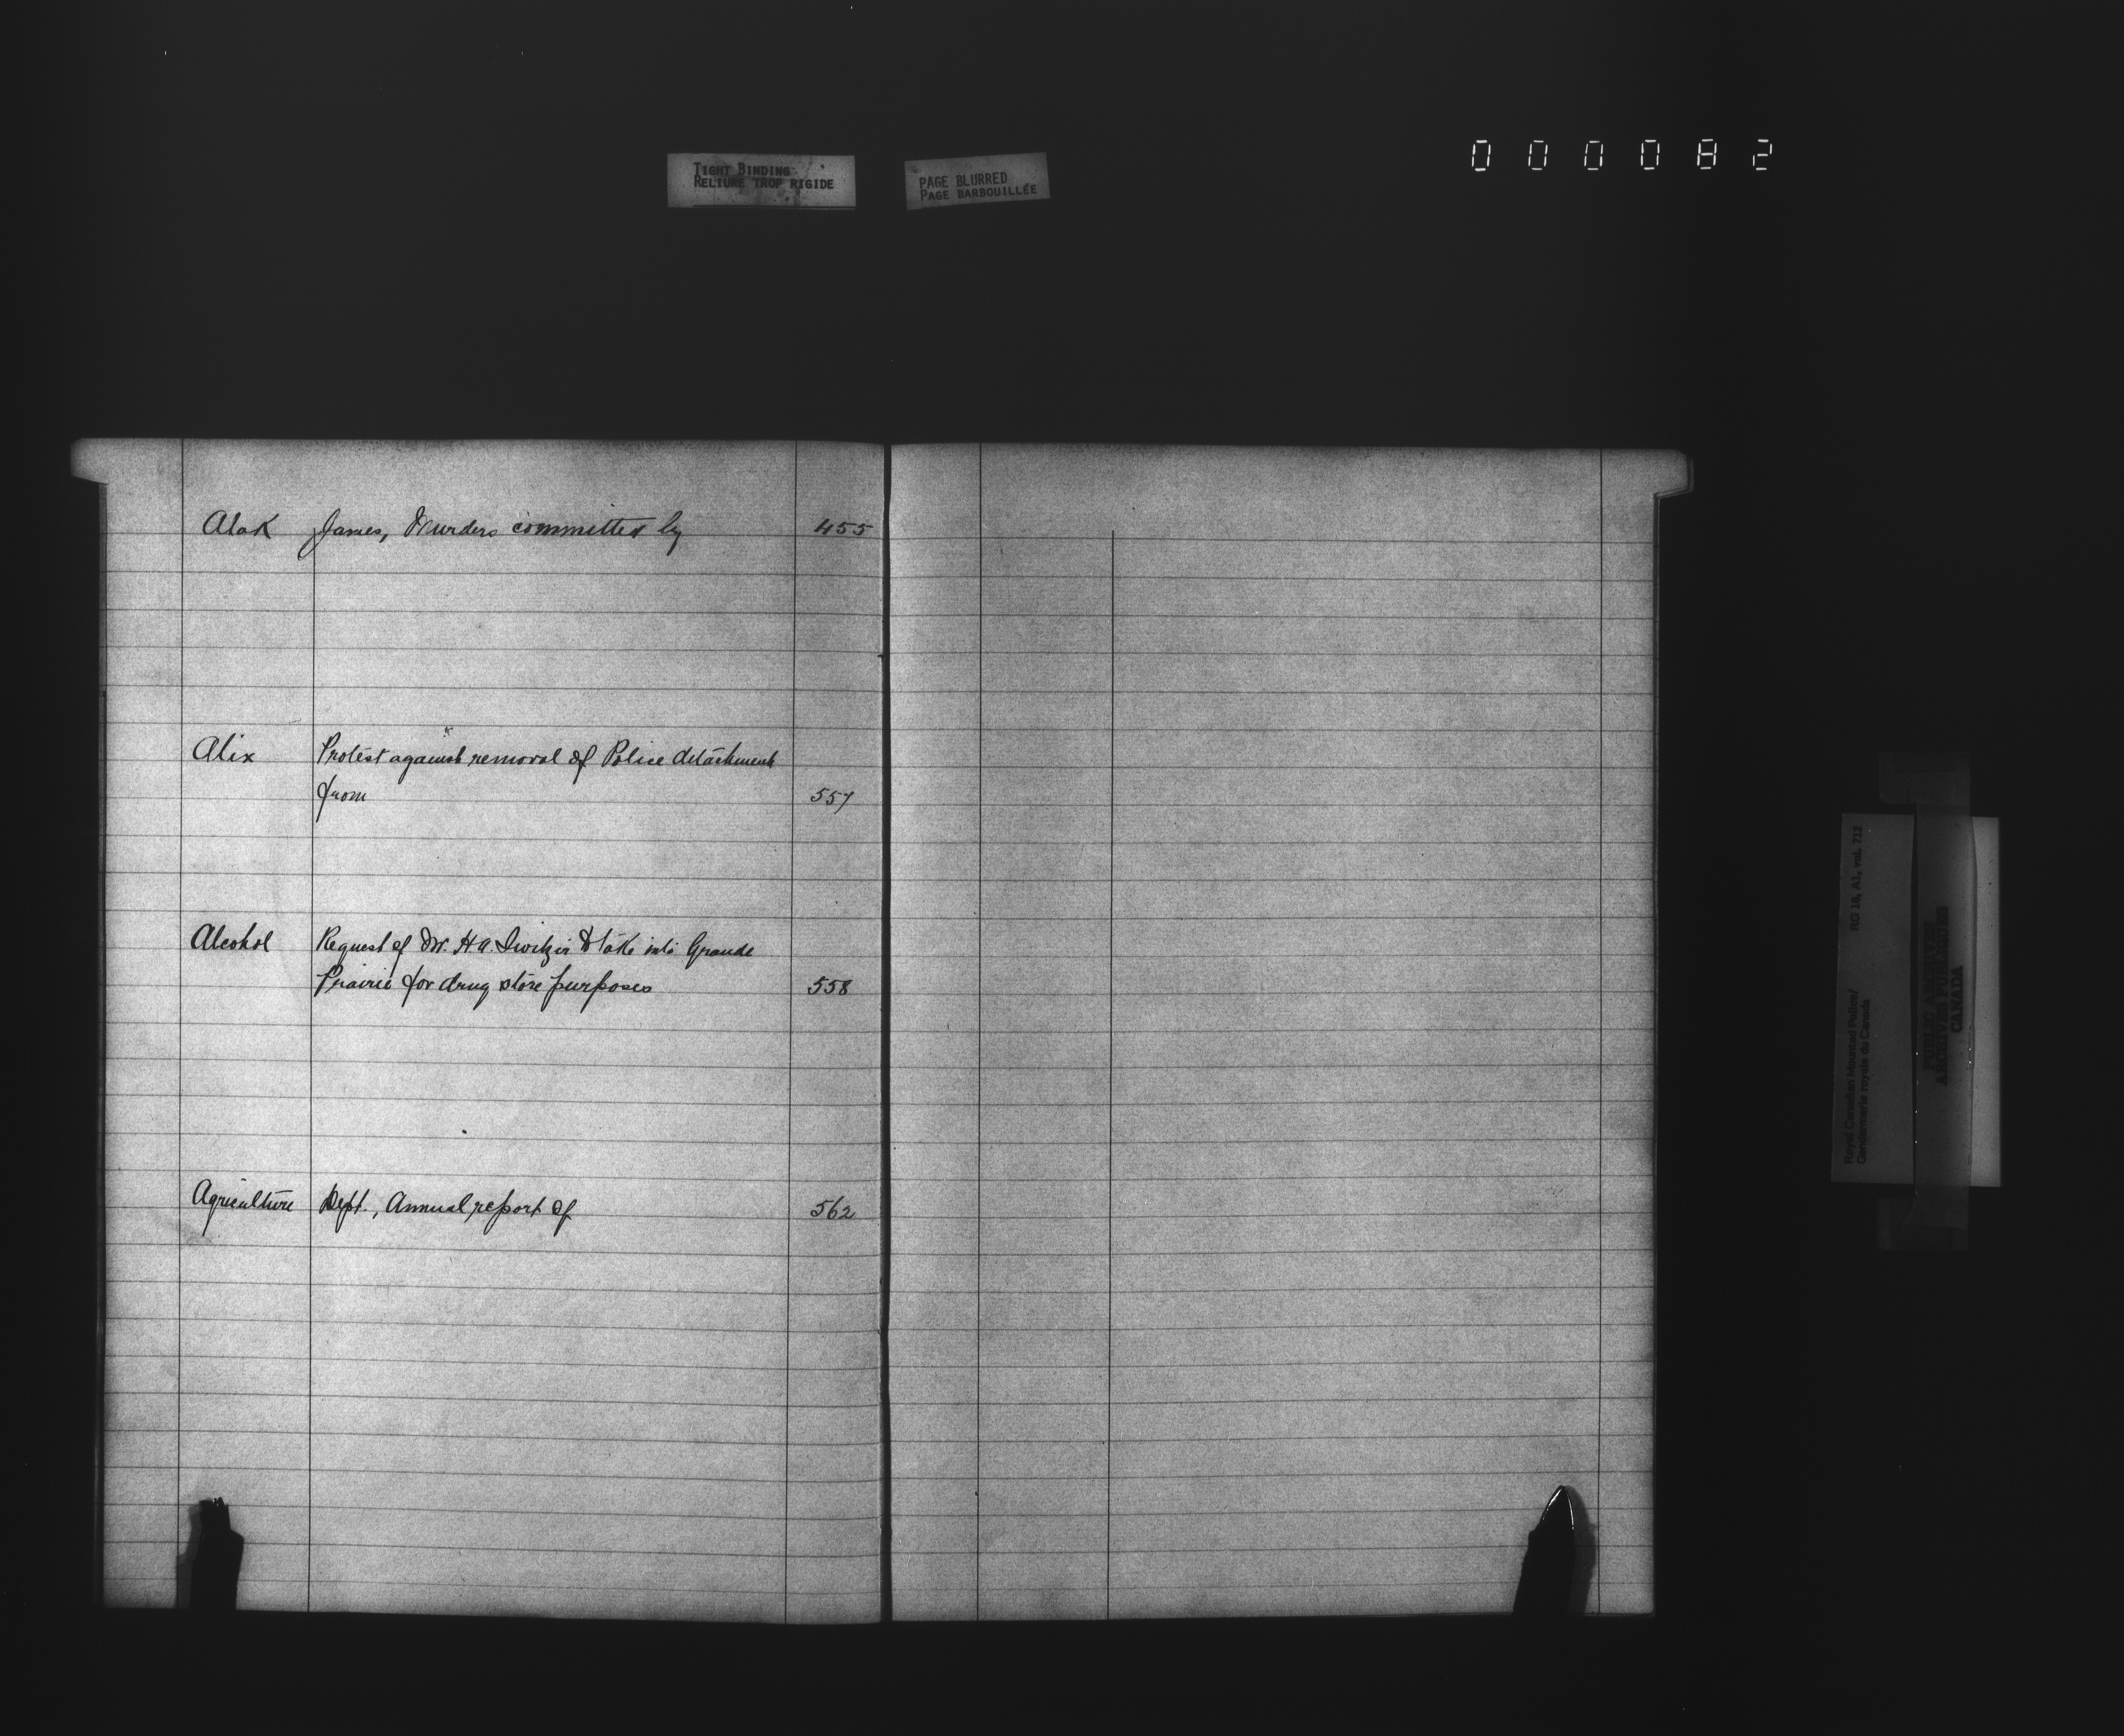 TIGHT BINDING
RELIURE TROP RIGIDE
PAGE BLURRED
PAGE BARBOUILLÉE
000082
Alak James, Murders committed by 455
Alix Protest against removal of Police detachment
from 557
Alcohol Request of Dr. H.A. to take into Grande
Prairie for drug store purposes 558
Agriculture Dept., Annual report of 562
Royal Canadian Mounted Police/
Gendarmerie royale du Canada
RG 18, A1, vol. 712
PUBLIC ARCHIVES
ARCHIVES PUBLIQUES
CANADA